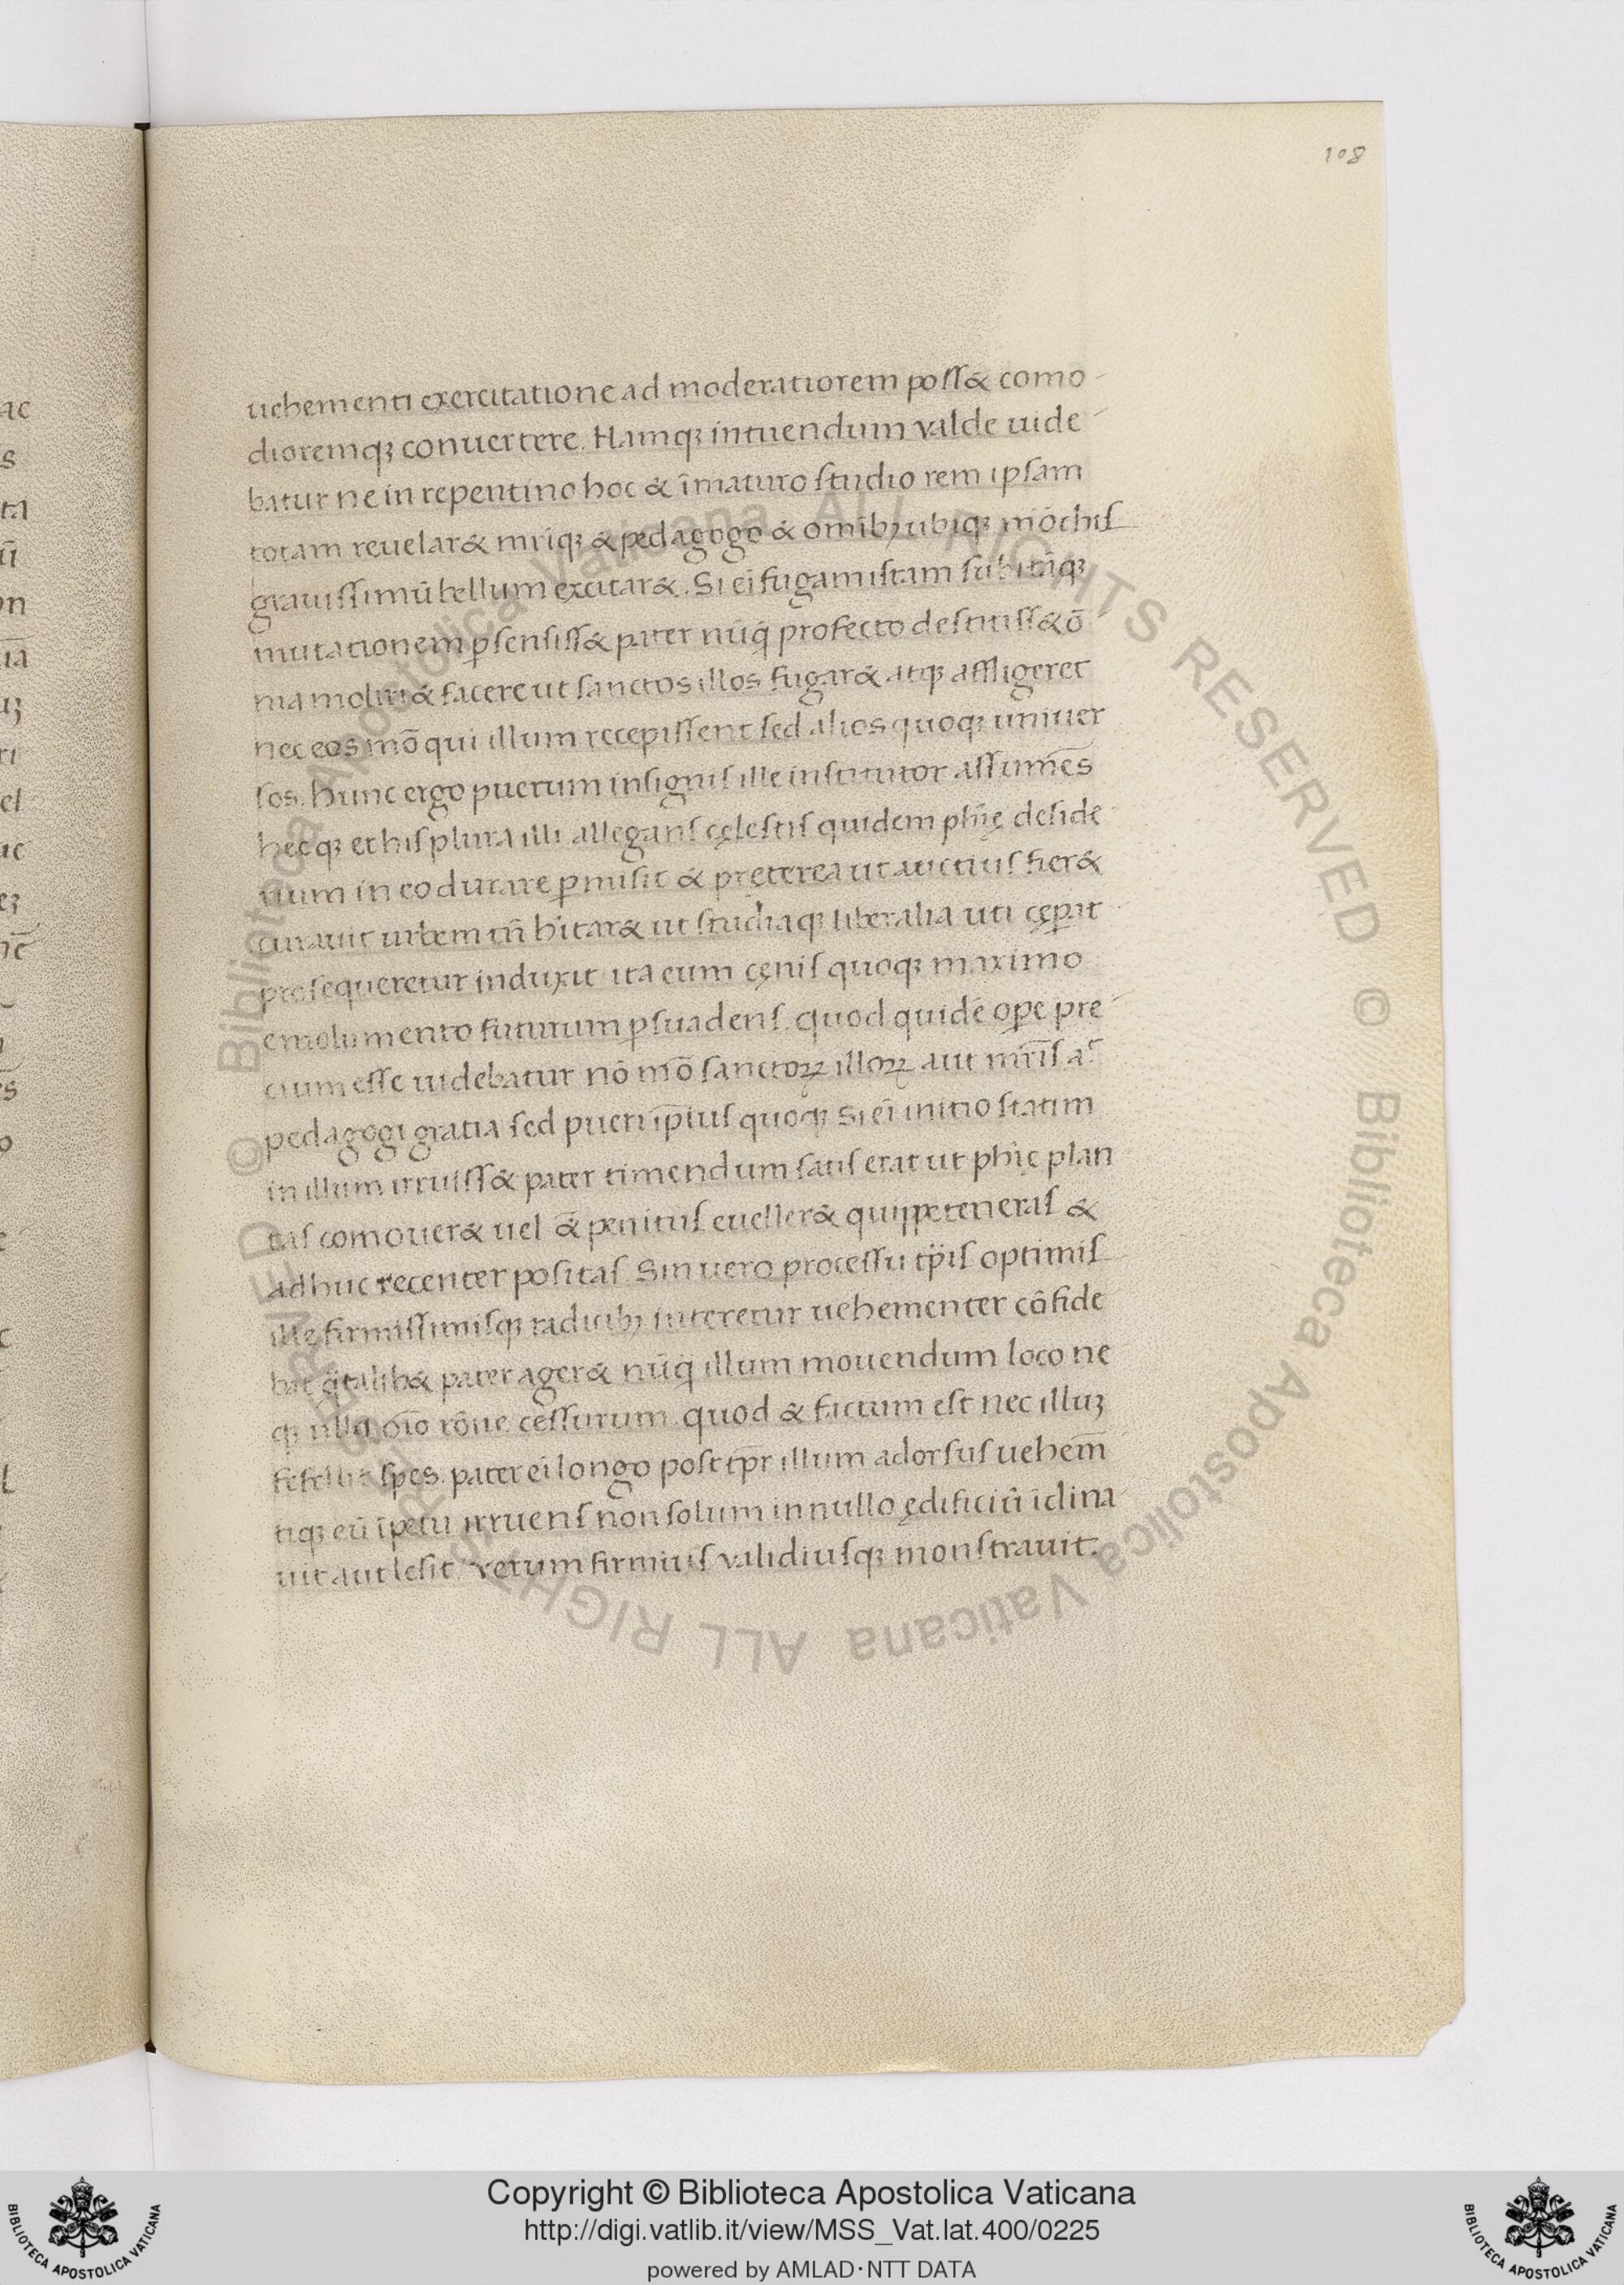 108
uehementi exercitatione ad moderatiorem poss& como-
dioremq; conuertere. Namq; intuendum valde uide-
batur ne in repentino hoc & īmaturo studio rem ipsam
totam reuelar& mr̄iq; & pedagogo & omīb; ubiq; mōchis
grauissimū bellum excitar&. Si eī fugam istam subitāq;
mutationem p̱sensiss& pater nūq̄ profecto destitiss& ō-
nia moliri & facere ut sanctos illos fugar& atq; affligeret
nec eos mō qui illum recepissent sed alios quoq; uniuer
sos. hunc ergo puerum insignis ille institutor assumēs
hęcq; et his plura illi allegans cęlestis quidem phīę deside-
rium in eo durare p̱misit & pręterea ut auctius fier&
curauit urbem tn̄ h'itar& ut studiaq; liberalia uti cęperat
prosequeretur induxit ita eum cęnis quoq; maximo
emolumento futurum p̱suadens. quod quidē ope pre-
cium esse uidebatur nō mō sanctoꝝ illoꝝ aut mr̄is a͡c
pedagogi gratia sed pueri ip̄ius quoq; Si eī initio statim
in illum irruiss& pater timendum satis erat ut phīę plan
tas comouer& uel &̄ penitus eueller& quippe teneras &
adhuc recenter positas. Sin uero processu tp̄is optimis
ille firmissimisq; radicib; niteretur uehementer cōfide
bat q̄talib& pater ager& nūq̄ illum mouendum loco ne
q; ulla oīo rōne cessurum. quod & factum est nec illuꝫ
fefellit spes. pater eī longo post tp̄r illum adorsus uehem̄
tiq; eū īpetu irruens non solum in nullo ędificiū īclina-
uit aut lesit. verum firmius validiusq; monstrauit.
© Biblioteca Apostolica Vaticana ALL RIGHTS RESERVED © Biblioteca Apostolica Vaticana ALL RIGHTS RESERVED
Copyright © Biblioteca Apostolica Vaticana
http://digi.vatlib.it/view/MSS_Vat.lat.400/0225
powered by AMLAD·NTT DATA
BIBLIOTECA APOSTOLICA VATICANA
BIBLIOTECA APOSTOLICA VATICANA